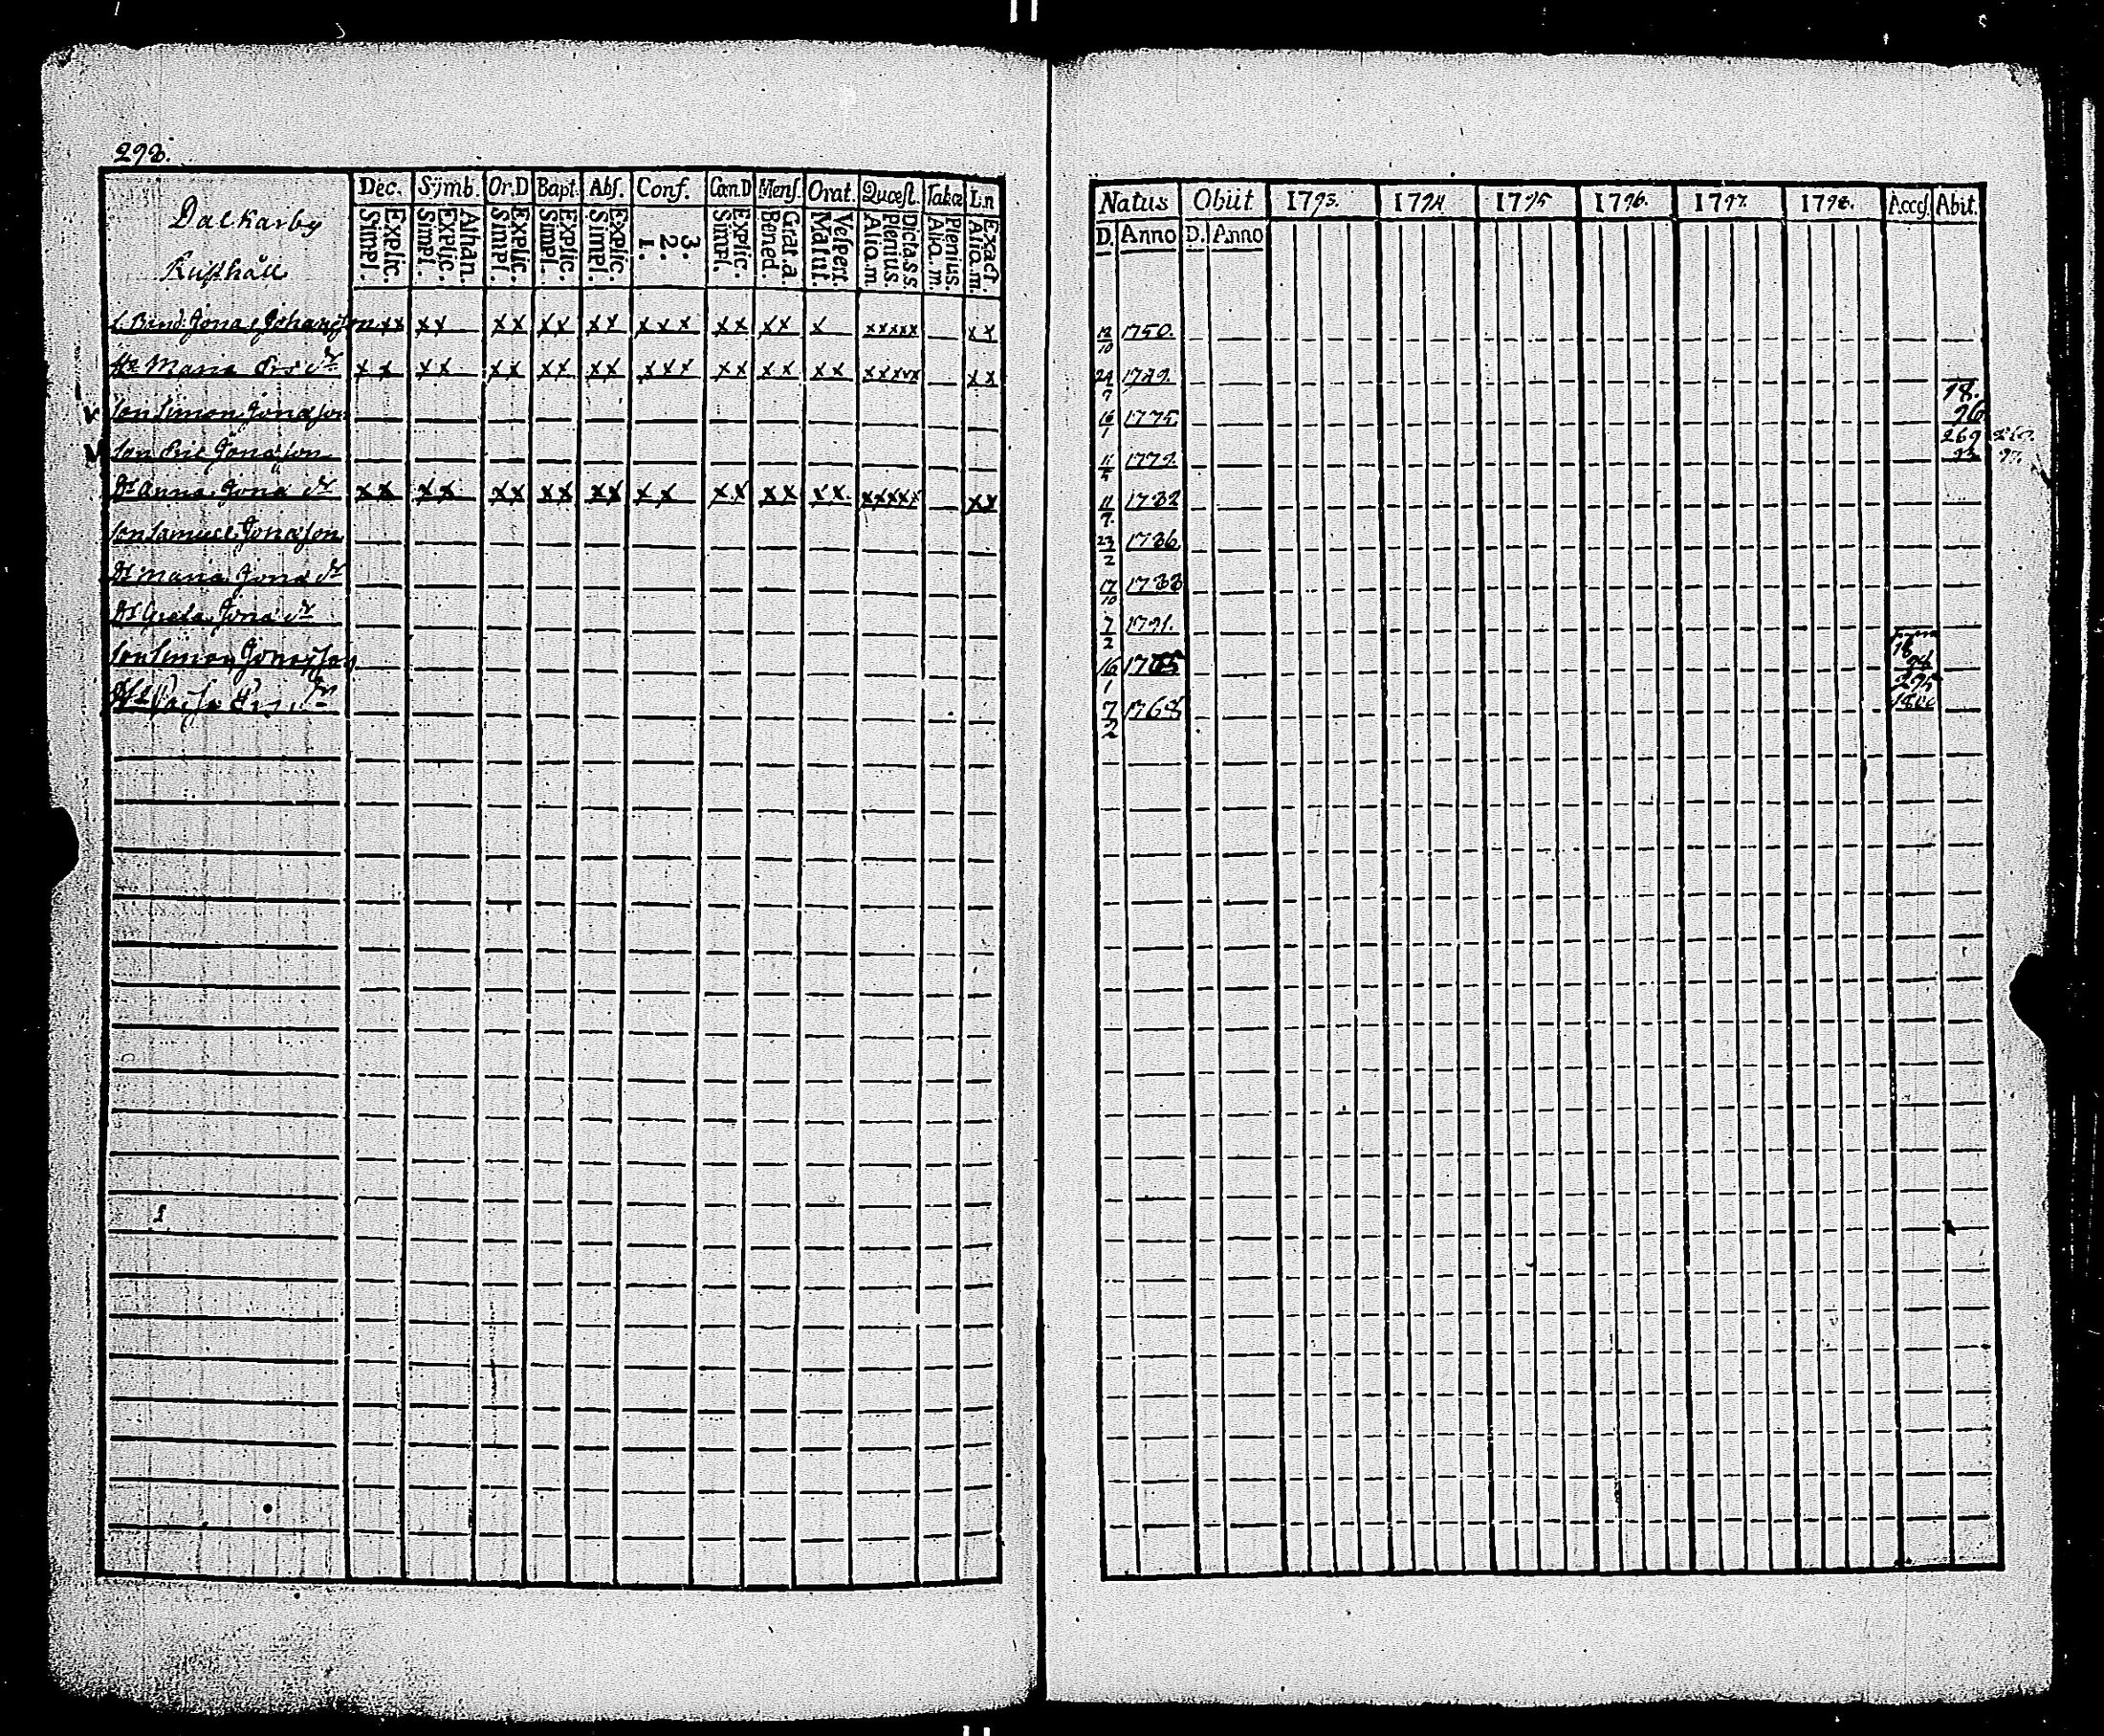 298.
Dec. Sÿmb. Or.D Bapt. Abſ. Conf. Cœn.D Menſ. Orat. Quœſt. Tabœ L.n
Dalkarby
Rusthåll
Explic. Simpl. Athan. Explic. Simpl. Explic. Simpl. Explic. Simpl. Explic. Simpl. 3. 2. 1. Explic. Simpl. Grat.a. Bened. Veſpert. Matut. Dictass. Plenius. Alio.m. Plenius. Alio.m. Exact. Alio.m.
Natus Obiit 1793. 1794 1795 1796. 1797. 1798. Acceſ. Abit.
D. Anno D. Anno
Bond. Jonas Johansson xx xx xx xx xx xxx xx xx x xxxxx xx 12/10 1750.
Hu Maria Ersdr xx xx xx xx xx xxx xx xx xx xxxxx xx 24/7 1749.
v Son Simon Jonasson 16/1 1775. 18. 96
v Son Eric Jonasson 11/5 1779. 269
Dr Anna Jonadr xx xx xx xx xx xx xx xx xx xxxxx xx 11/7. 1782
Son Samuel Jonasson 23/2 1786.
Dr Maria Jonadr 17/10 1788
Dr Greta Jonadr 7/2 1791.
Son Simon Jonasson 16/1
Ersdr 7/2 1768